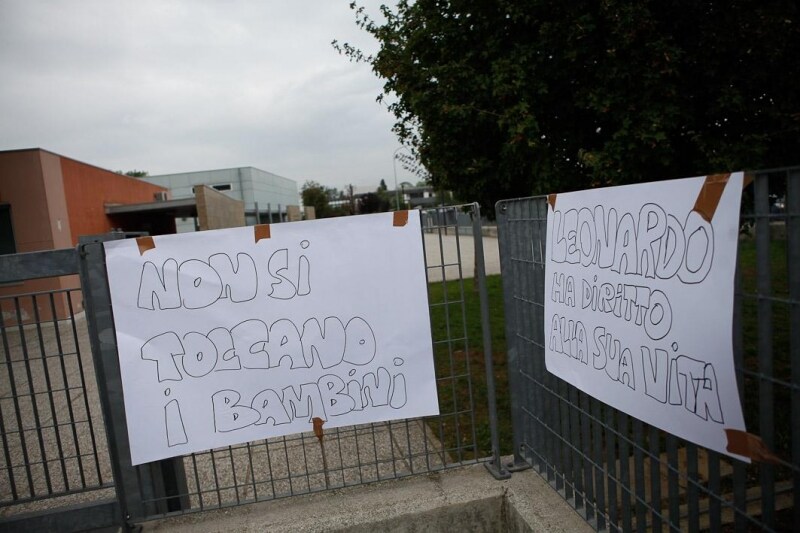 NON SI
TOCCANO
i BAMBiNi
LEONARDO
HA DiRiTTO
ALLA SUA ViTA